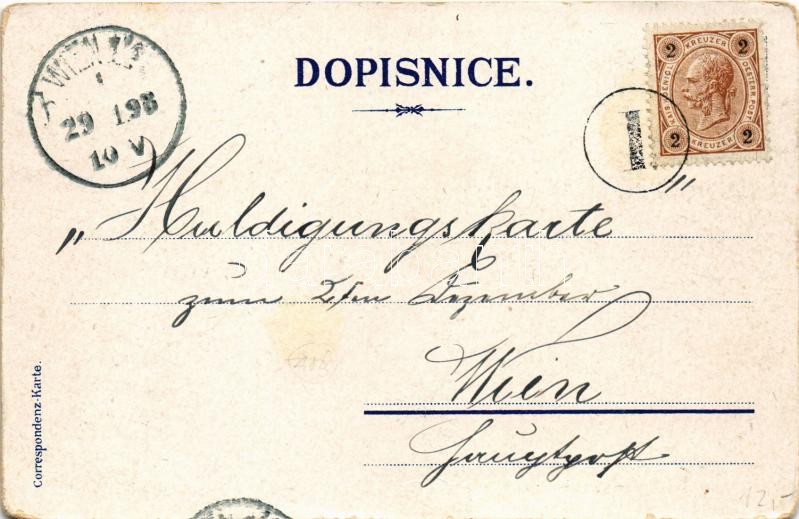 WIEN 1/1
1
29 1.98
10 V
DOPISNICE.
2 KREUZER 2
KAIS. KÖNIGL. OESTERR. POST
2 KREUZER 2
1
„Huldigungskarte"
zum 2ten Dezember
Wien
Hauptpost
Correspondenz-Karte.
12,-